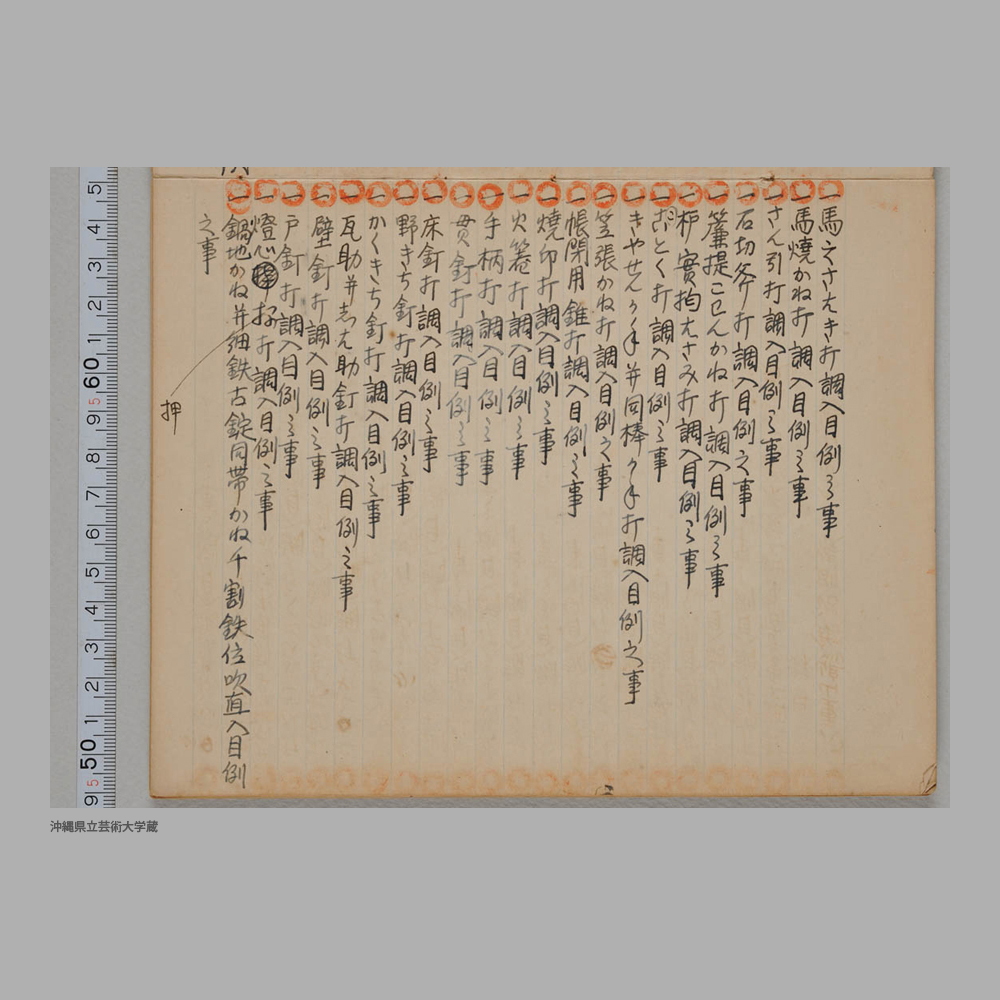 一馬之さたき打調入目例之事
一馬焼かね打調入目例之事
一さん引打調入目例之事
一石切斧打調入目例之事
一簾提こしんかね打調入目例之事
一枦実拘たさみ打調入目例之事
とく打調入目例之事
一きやせんうす并同棒うす打調入目例之事
一笠張かね打調入目例之事
一帳閉用錐打調入目例之事
一焼印打調入目例之事
一火箸打調入目例之事
一手柄打調入目例之事
一貫釘打調入目例之事
一床釘打調入目例之事
一野きち釘打調入目例之事
一かくきち釘打調入目例之事
一瓦助并志た助釘打調入目例之事
一壁釘打調入目例之事
一戸釘打調入目例之事
一燈心打調入目例之事
押
一鍋地かね并細鉄古錠同帯かね千割鉄位吹直入目例
之事
5 4 3 2 1 60 9 5 8 7 6 5 4 3 2 1 50 5 9
沖縄県立芸術大学蔵